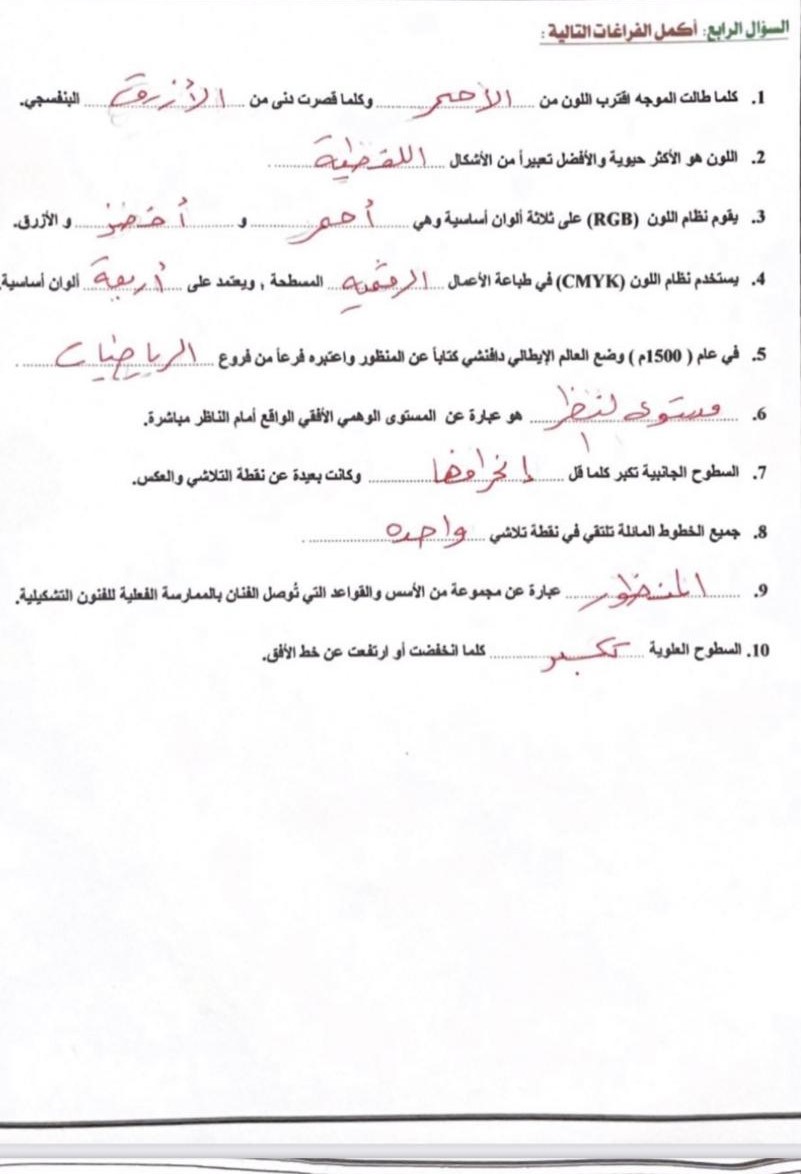 السؤال الرابع: أكمل الفراغات التالية :
1. كلما طالت الموجه اقترب اللون من الأحمر وكلما قصرت دنى من الأزرق البنفسجي.
2. اللون هو الأكثر حيوية والأفضل تعبيراً من الأشكال اللفظية
3. يقوم نظام اللون (RGB) على ثلاثة ألوان أساسية وهي أحمر و أخضر و الأزرق.
4. يستخدم نظام اللون (CMYK) في طباعة الأعمال الرقمية المسطحة , ويعتمد على أربعة ألوان أساسية.
5. في عام ( 1500م ) وضع العالم الإيطالي دافنشي كتاباً عن المنظور واعتبره فرعاً من فروع الرياضيات
6. مستوى النظر هو عبارة عن المستوى الوهمي الأفقي الواقع أمام الناظر مباشرة.
7. السطوح الجانبية تكبر كلما قل إنحرافها وكانت بعيدة عن نقطة التلاشي والعكس.
8. جميع الخطوط المائلة تلتقي في نقطة تلاشي واحده
9. المنظور عبارة عن مجموعة من الأسس والقواعد التي تُوصل الفنان بالممارسة الفعلية للفنون التشكيلية.
10. السطوح العلوية تكبر كلما انخفضت أو ارتفعت عن خط الأفق.